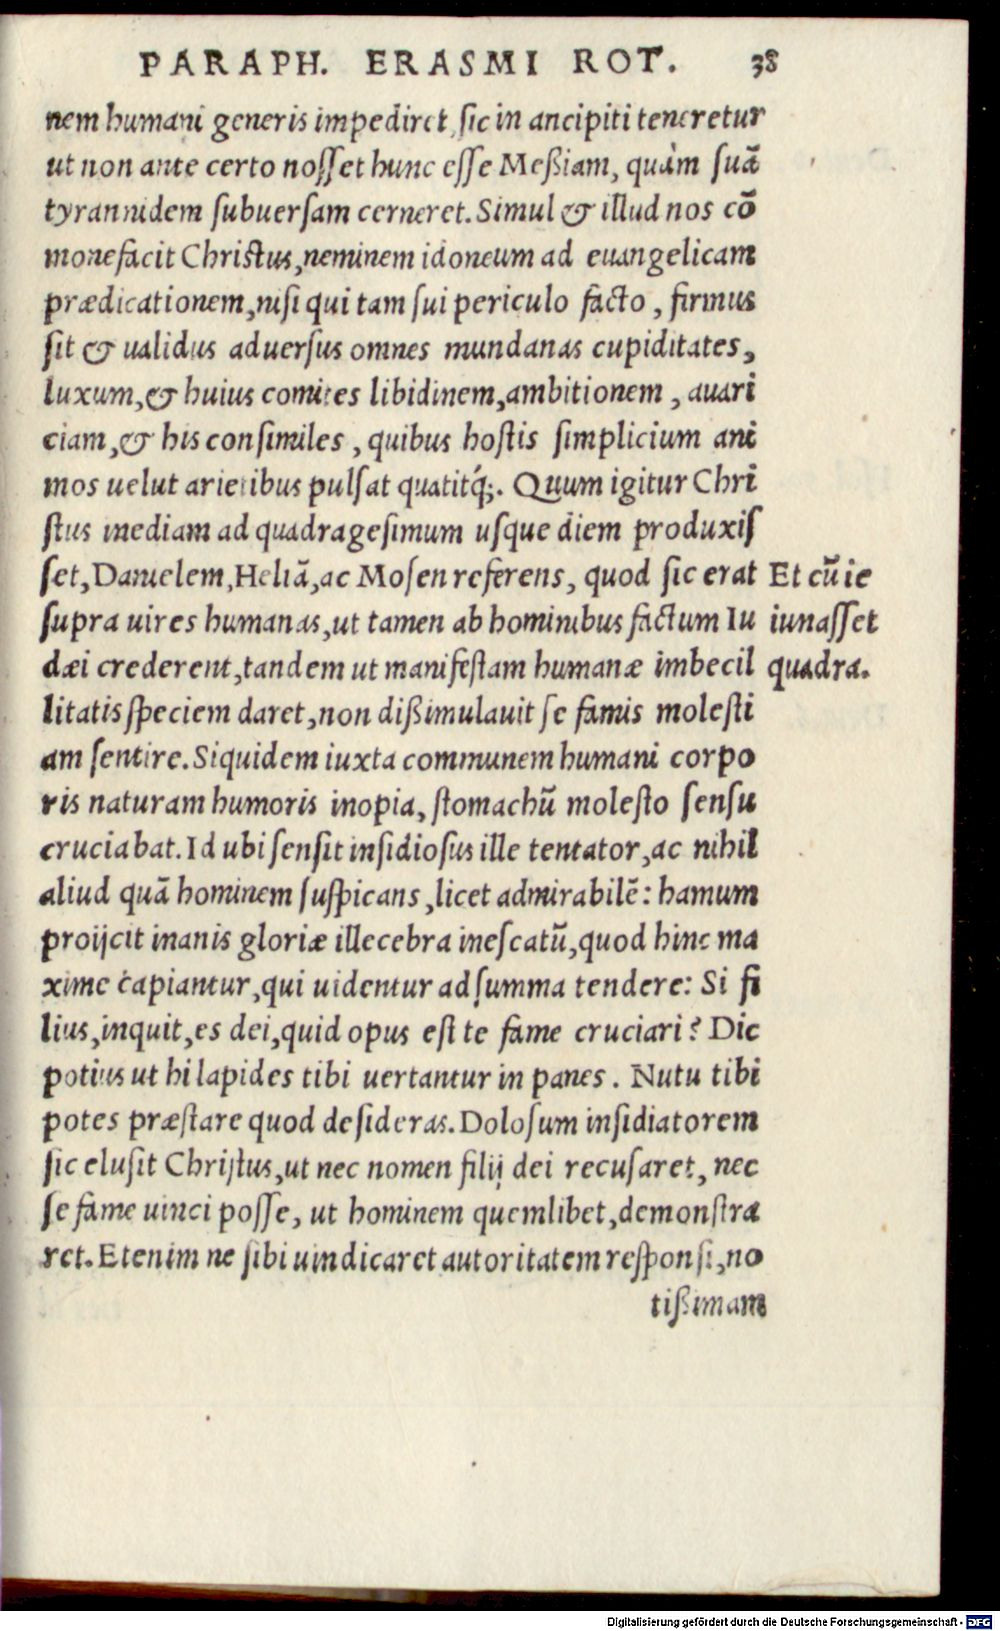 PARAPH. ERASMI ROT. 38
nem humani generis impediret, sic in ancipiti teneretur
ut non ante certo nosset hunc esse Meßiam, quàm suã
tyrannidem subuersam cerneret. Simul & illud nos cõ
monefacit Christus, neminem idoneum ad euangelicam
prædicationem, nisi qui tam sui periculo facto, firmus
sit & ualidus aduersus omnes mundanas cupiditates,
luxum, & huius comites libidinem, ambitionem, auari
ciam, & his consimiles, quibus hostis simplicium ani
mos uelut arietibus pulsat quatitq́;. Quum igitur Chri
stus inediam ad quadragesimum usque diem produxis
set, Danielem, Heliã, ac Mosen referens, quod sic erat
Et cũ ie
supra uires humanas, ut tamen ab hominibus factum Iu
iunasset
dæi crederent, tandem ut manifestam humanæ imbecil
quadra.
litatis speciem daret, non dißimulauit se famis molesti
am sentire. Siquidem iuxta communem humani corpo
ris naturam humoris inopia, stomachũ molesto sensu
cruciabat. Id ubi sensit insidiosus ille tentator, ac nihil
aliud quã hominem suspicans, licet admirabilẽ: hamum
proijcit inanis gloriæ illecebra inescatũ, quod hinc ma
xime capiantur, qui uidentur ad summa tendere: Si fi
lius, inquit, es dei, quid opus est te fame cruciari? Dic
potius ut hi lapides tibi uertantur in panes. Nutu tibi
potes præstare quod desideras. Dolosum insidiatorem
sic elusit Christus, ut nec nomen filij dei recusaret, nec
se fame uinci posse, ut hominem quemlibet, demonstra
ret. Etenim ne sibi uindicaret autoritatem responsi, no
tißimam
Digitalisierung gefördert durch die Deutsche Forschungsgemeinschaft - DFG